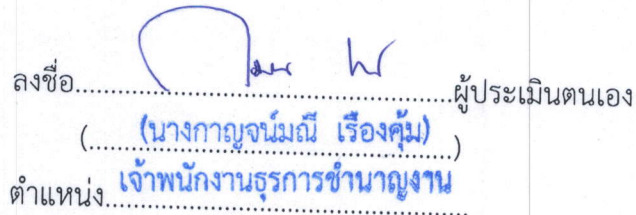 ลงชื่อ........................................................ผู้ประเมินตนเอง
(นางกาญจน์มณี เรืองคุ้ม)
ตำแหน่ง เจ้าพนักงานธุรการชำนาญงาน